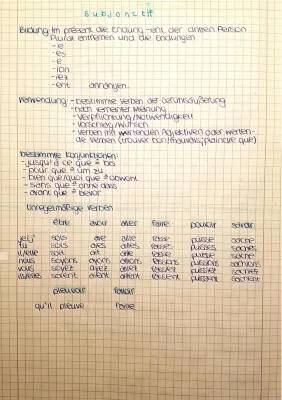 Subjonctif
Bildung: Im présent die Endung -ent der dritten Person
Plural entfernen und die Endungen
-e
-es
-e
-ion
-iez
-ent anhängen.
Verwendung: - bestimmte Verben der Gefühlsäußerung
- nach verneinter Meinung
- Verpflichtung/Notwendigkeit
- Vorschlag/Wunsch
- Verben mit wertenden Adjektiven oder werten-
de Verben (trouver bon/mauvais; plaindre que)
bestimmte Konjunktionen:
- jusqu'à ce que = bis
- pour que = um zu
- bien que/quoi que = obwohl
- sans que = ohne dass
- avant que = bevor
Unregelmäßige Verben
être avoir aller faire pouvoir savoir
je/j' sois aie aille fasse puisse sache
tu sois aies ailles fasses puisses saches
il/elle soit ait aille fasse puisse sache
nous soyons ayons allions fassions puissions sachions
vous soyez ayez alliez fassiez puissiez sachiez
ils/elles soient aient aillent fassent puissent sachent
pleuvoir
qu'il pleuve